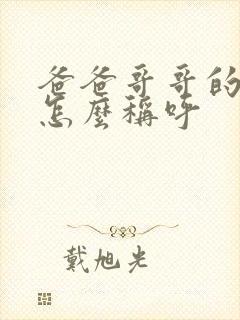 爸爸哥哥的
怎麼稱呼
戴旭光